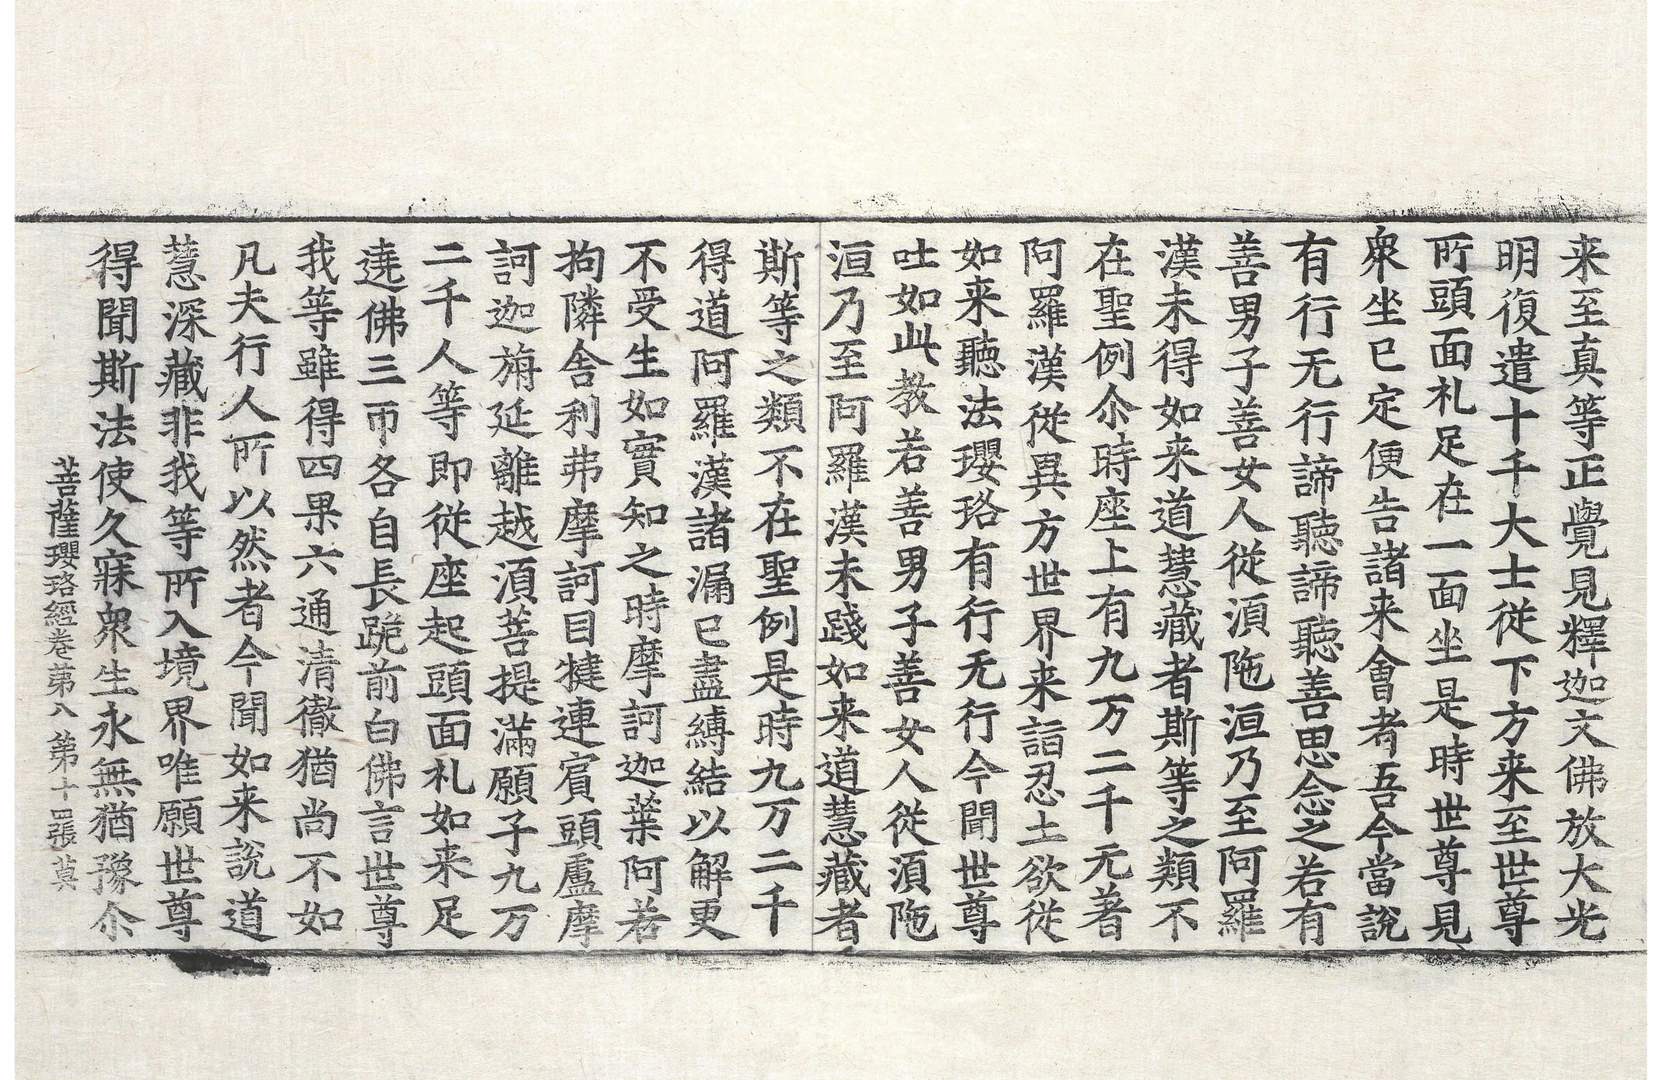 来至真等正覺見釋迦文佛放大光
明復遣十千大士從下方来至世尊
所頭面礼足在一面坐是時世尊見
衆坐已定便告諸来會者吾今當說
有行无行諦聽諦聽善思念之若有
善男子善女人從湏陁洹乃至阿羅
漢未得如来道慧藏者斯等之類不
在聖例尒時座上有九万二千无著
阿羅漢從異方世界来詣忍土欲從
如来聽法瓔珞有行无行今聞世尊
吐如此教若善男子善女人從湏陁
洹乃至阿羅漢未踐如来道慧藏者
斯等之類不在聖例是時九万二千
得道阿羅漢諸漏已盡縛結以解更
不受生如實知之時摩訶迦葉阿若
拘隣舍利弗摩訶目揵連賔頭盧摩
訶迦旃延離越湏菩提滿願子九万
二千人等即從座起頭面礼如来足
遶佛三帀各自長跪前白佛言世尊
我等雖得四果六通清徹猶尚不如
凡夫行人所以然者今聞如来說道
慧深藏非我等所入境界唯願世尊
得聞斯法使久寐衆生永無猶豫尒
菩薩瓔珞經卷第八 第十四張 莫